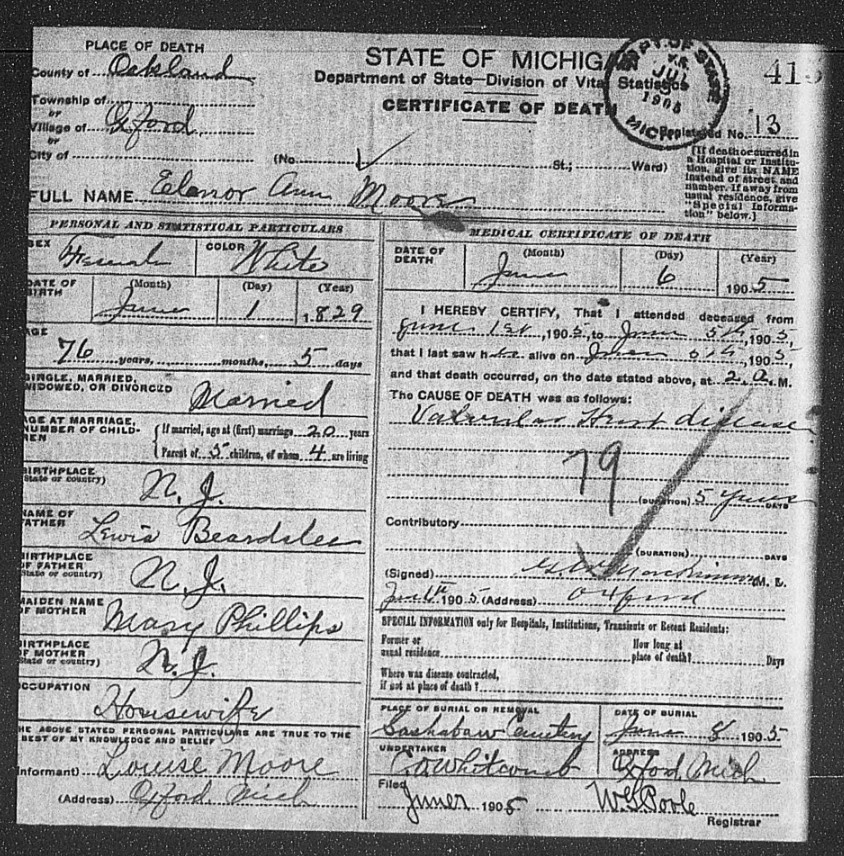 PLACE OF DEATH
County of Oakland
Township of
or
Village of Oxford
or
City of
STATE OF MICHIGAN
Department of State—Division of Vital Statistics
CERTIFICATE OF DEATH
DEPT. OF STATE
JUL
1905
MICH
415
Registered No. 13
(No. St.; Ward)
[If death occurred in
a Hospital or Institu-
tion, give its NAME
instead of street and
number. If away from
usual residence, give
"Special Informa-
tion" below.]
FULL NAME Elenor Ann Moore
PERSONAL AND STATISTICAL PARTICULARS
SEX Female
COLOR White
DATE OF BIRTH
(Month) (Day) (Year)
June 1 1829
AGE
76 years, months, 5 days
SINGLE, MARRIED,
WIDOWED, OR DIVORCED Married
AGE AT MARRIAGE,
NUMBER OF CHILD-
REN
If married, age at (first) marriage 20 years
Parent of 5 children, of whom 4 are living
BIRTHPLACE
(State or country) N. J.
NAME OF
FATHER Lewis Beardslee
BIRTHPLACE
OF FATHER
(State or country) N. J.
MAIDEN NAME
OF MOTHER Mary Phillips
BIRTHPLACE
OF MOTHER
(State or country) N. J.
OCCUPATION
Housewife
THE ABOVE STATED PERSONAL PARTICULARS ARE TRUE TO THE
BEST OF MY KNOWLEDGE AND BELIEF
(Informant) Louise Moore
(Address) Oxford Mich
MEDICAL CERTIFICATE OF DEATH
DATE OF
DEATH
(Month) (Day) (Year)
June 6 1905
I HEREBY CERTIFY, That I attended deceased from
June 1st, 1905, to June 5th, 1905,
that I last saw her alive on June 5th, 1905,
and that death occurred, on the date stated above, at 2 a. M.
The CAUSE OF DEATH was as follows:
Valvular Heart disease
79
(DURATION) 5 Years DAYS
Contributory
(DURATION) DAYS
(Signed) M. D.
1905 (Address) Oxford
SPECIAL INFORMATION only for Hospitals, Institutions, Transients or Recent Residents:
Former or
usual residence
How long at
place of death? Days
Where was disease contracted,
if not at place of death?
PLACE OF BURIAL OR REMOVAL
Sashabaw Cemetery
DATE OF BURIAL
June 8 1905
UNDERTAKER
C A Whitcomb
ADDRESS
Oxford Mich
Filed June 1905 W G Poole
Registrar